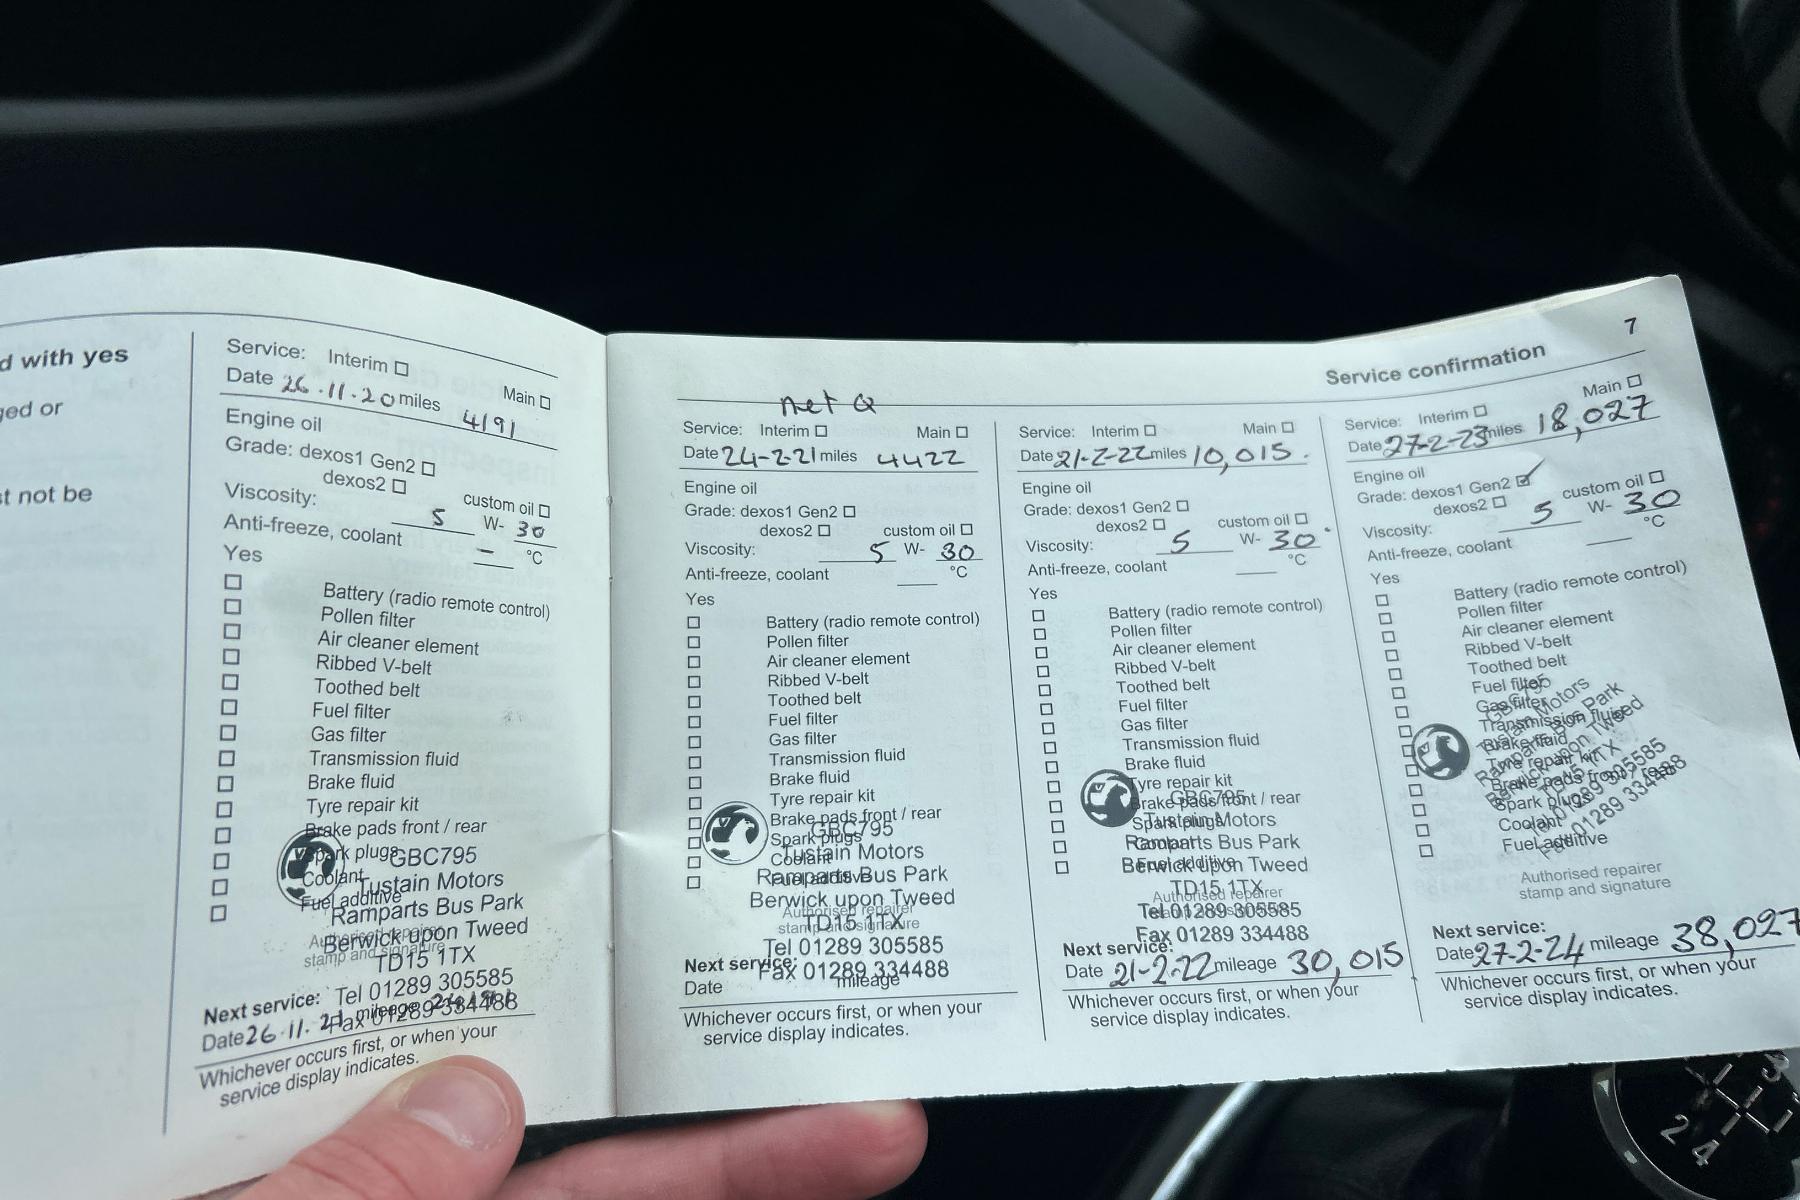 d with yes
ged or
st not be
Service: Interim Main
Date 26.11.20 miles 4191
Engine oil
Grade: dexos1 Gen2
dexos2 custom oil
Viscosity: 5 W- 30
Anti-freeze, coolant — °C
Yes
Battery (radio remote control)
Pollen filter
Air cleaner element
Ribbed V-belt
Toothed belt
Fuel filter
Gas filter
Transmission fluid
Brake fluid
Tyre repair kit
Brake pads front / rear
Spark plugs
Coolant
Fuel additive
GBC795
Tustain Motors
Ramparts Bus Park
Berwick upon Tweed
TD15 1TX
Tel 01289 305585
Fax 01289 334488
Authorised repairer
stamp and signature
Next service:
Date 26.11.21 mileage
Whichever occurs first, or when your
service display indicates.
Service: Interim Main
Date 24-2-21 miles 4422
Engine oil
Grade: dexos1 Gen2
dexos2 custom oil
Viscosity: 5 W- 30
Anti-freeze, coolant °C
Yes
Battery (radio remote control)
Pollen filter
Air cleaner element
Ribbed V-belt
Toothed belt
Fuel filter
Gas filter
Transmission fluid
Brake fluid
Tyre repair kit
Brake pads front / rear
Spark plugs
Coolant
Fuel additive
GBC795
Tustain Motors
Ramparts Bus Park
Berwick upon Tweed
TD15 1TX
Tel 01289 305585
Fax 01289 334488
Authorised repairer
stamp and signature
Next service:
Date mileage
Whichever occurs first, or when your
service display indicates.
Service: Interim Main
Date 21-2-22 miles 10,015.
Engine oil
Grade: dexos1 Gen2
dexos2 custom oil
Viscosity: 5 W- 30
Anti-freeze, coolant °C
Yes
Battery (radio remote control)
Pollen filter
Air cleaner element
Ribbed V-belt
Toothed belt
Fuel filter
Gas filter
Transmission fluid
Brake fluid
Tyre repair kit
Brake pads front / rear
Spark plugs
Coolant
Fuel additive
GBC795
Tustain Motors
Ramparts Bus Park
Berwick upon Tweed
TD15 1TX
Tel 01289 305585
Fax 01289 334488
Authorised repairer
Next service:
Date 21-2-22 mileage 30,015
Whichever occurs first, or when your
service display indicates.
7
Service confirmation
Service: Interim Main
Date 27-2-23 miles 18,027
Engine oil
Grade: dexos1 Gen2
dexos2 custom oil
Viscosity: 5 W- 30
Anti-freeze, coolant °C
Yes
Battery (radio remote control)
Pollen filter
Air cleaner element
Ribbed V-belt
Toothed belt
Fuel filter
Gas filter
Transmission fluid
Brake fluid
Tyre repair kit
Brake pads front / rear
Spark plugs
Coolant
Fuel additive
GBC795
Tustain Motors
Ramparts Bus Park
Berwick upon Tweed
TD15 1TX
Tel 01289 305585
Fax 01289 334488
Authorised repairer
stamp and signature
Next service:
Date 27-2-24 mileage 38,027
Whichever occurs first, or when your
service display indicates.
3
2 4